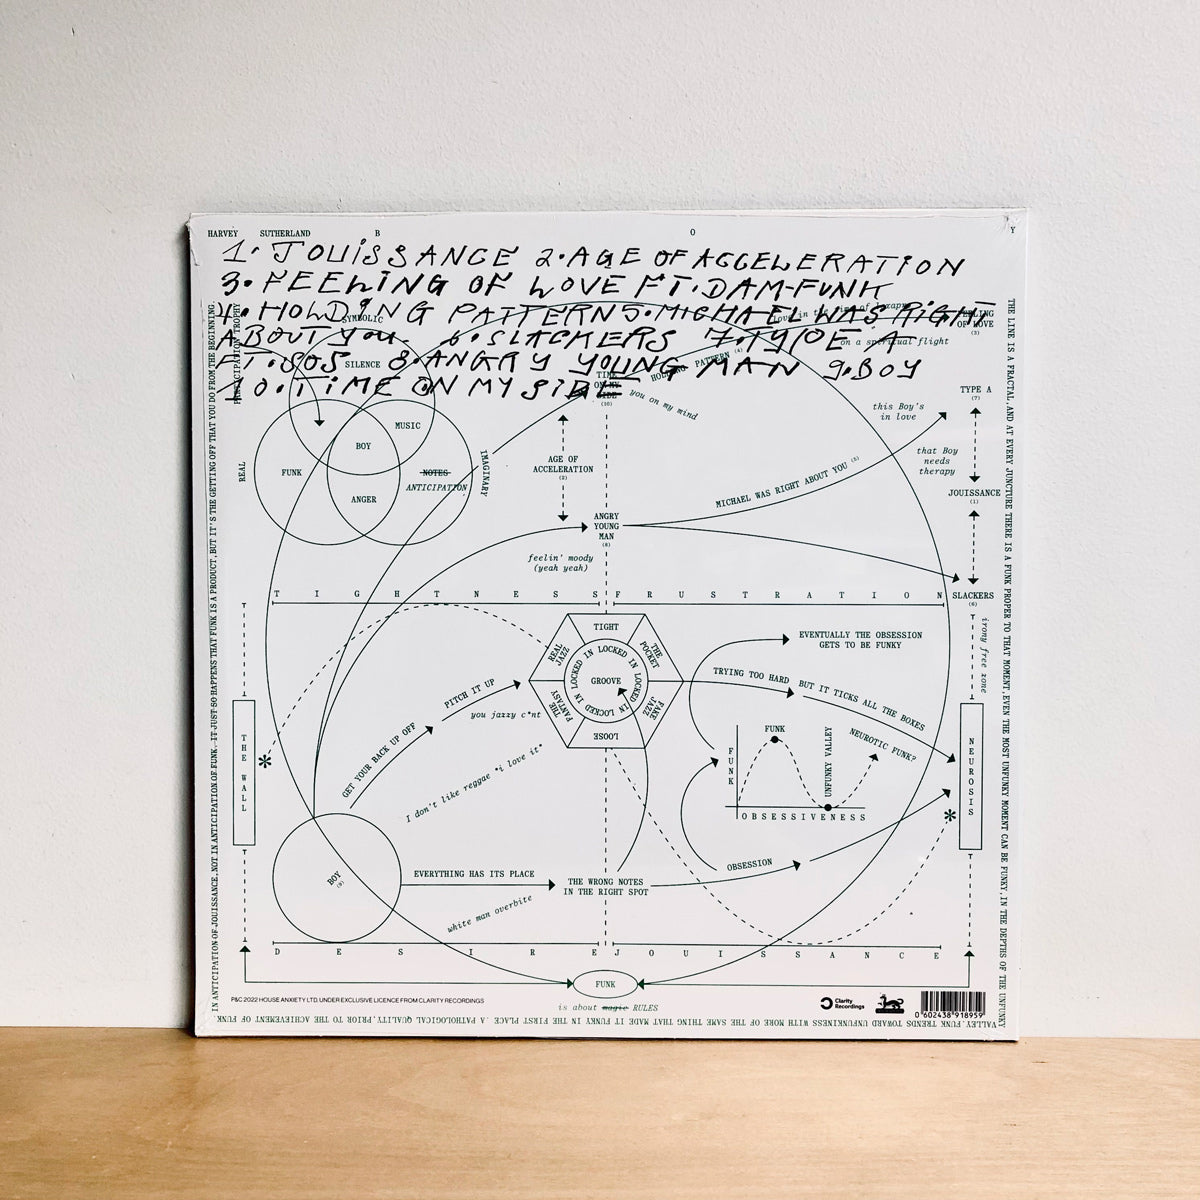 HARVEY SUTHERLAND B O Y
1. JOUISSANCE 2. AGE OF ACCELERATION
3. FEELING OF LOVE FT. DAM-FUNK
4. HOLDING PATTERN 5. MICHAEL WAS RIGHT
ABOUT YOU. 6. SLACKERS 7. TYPE A
FT. SOS 8. ANGRY YOUNG MAN 9. BOY
10. TIME ON MY SIDE
SYMBOLIC
SILENCE
MUSIC
BOY
FUNK
NOTES
ANTICIPATION
ANGER
REAL
IMAGINARY
PARTICIPATION TROPHY
TIME
ON MY
SIDE
(10)
HOLDING PATTERN (4)
you on my mind
on a spiritual flight
FEELING
OF LOVE
(3)
TYPE A
(7)
this Boy's
in love
that Boy
needs
therapy
JOUISSANCE
(1)
SLACKERS
(6)
irony free zone
AGE OF
ACCELERATION
(2)
MICHAEL WAS RIGHT ABOUT YOU (5)
ANGRY
YOUNG
MAN
(8)
feelin' moody
(yeah yeah)
T I G H T N E S S
F R U S T R A T I O N
TIGHT
THE POCKET
FAKE JAZZ
LOOSE
THE FANTASY
REAL JAZZ
LOCKED IN LOCKED IN LOCKED IN LOCKED IN LOCKED IN
GROOVE
EVENTUALLY THE OBSESSION
GETS TO BE FUNKY
TRYING TOO HARD
BUT IT TICKS ALL THE BOXES
GET YOUR BACK UP OFF
PITCH IT UP
you jazzy c*nt
I don't like reggae *i love it*
THE WALL
*
FUNK
FUNK
UNFUNKY VALLEY
NEUROTIC FUNK?
OBSESSIVENESS
NEUROSIS
*
BOY
(9)
EVERYTHING HAS ITS PLACE
THE WRONG NOTES
IN THE RIGHT SPOT
OBSESSION
white man overbite
D E S I R E
J O U I S S A N C E
FUNK
is about magic RULES
P&C 2022 HOUSE ANXIETY LTD. UNDER EXCLUSIVE LICENCE FROM CLARITY RECORDINGS
Clarity
Recordings
0 602438 918959
IN ANTICIPATION OF JOUISSANCE, NOT IN ANTICIPATION OF FUNK. IT JUST SO HAPPENS THAT FUNK IS A PRODUCT, BUT IT'S THE GETTING OFF THAT YOU DO FROM THE BEGINNING.
THE LINE IS A FRACTAL, AND AT EVERY JUNCTURE THERE IS A FUNK PROPER TO THAT MOMENT. EVEN THE MOST UNFUNKY MOMENT CAN BE FUNKY, IN THE DEPTHS OF THE UNFUNKY
VALLEY. FUNK TRENDS TOWARD UNFUNKINESS WITH MORE OF THE SAME THING THAT MADE IT FUNKY IN THE FIRST PLACE. A PATHOLOGICAL QUALITY, PRIOR TO THE ACHIEVEMENT OF FUNK.